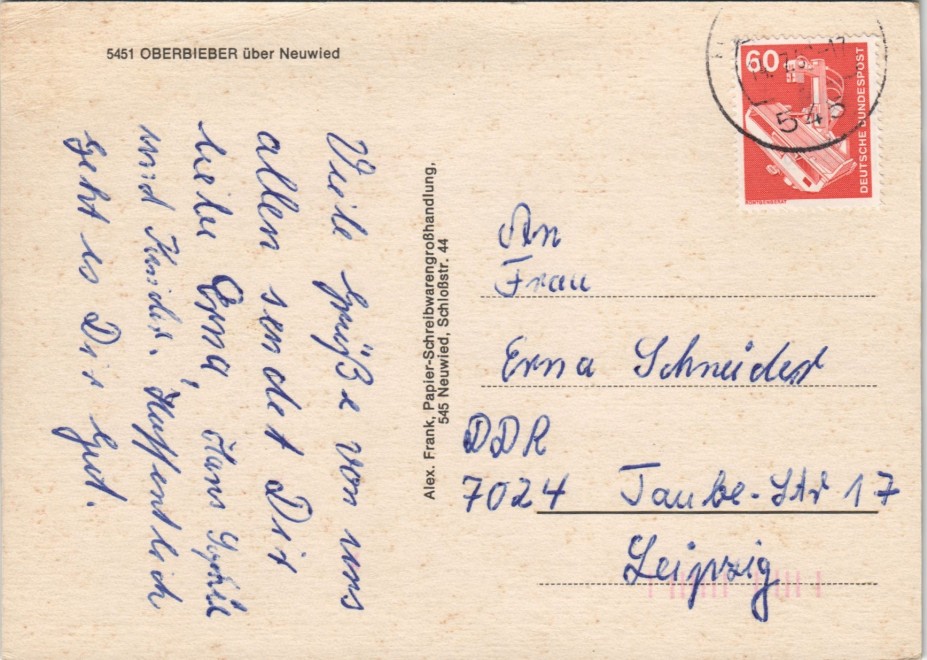 5451 OBERBIEBER über Neuwied
Viele Grüße von uns
allen sendet Dir
liebe Erna, Hans
und Kinder. Hoffentlich
geht es Dir gut.
Alex. Frank, Papier-Schreibwarengroßhandlung,
545 Neuwied, Schloßstr. 44
60
DEUTSCHE BUNDESPOST
545
An
Frau
Erna Schneider
DDR
7024 Taube-Str 17
Leipzig